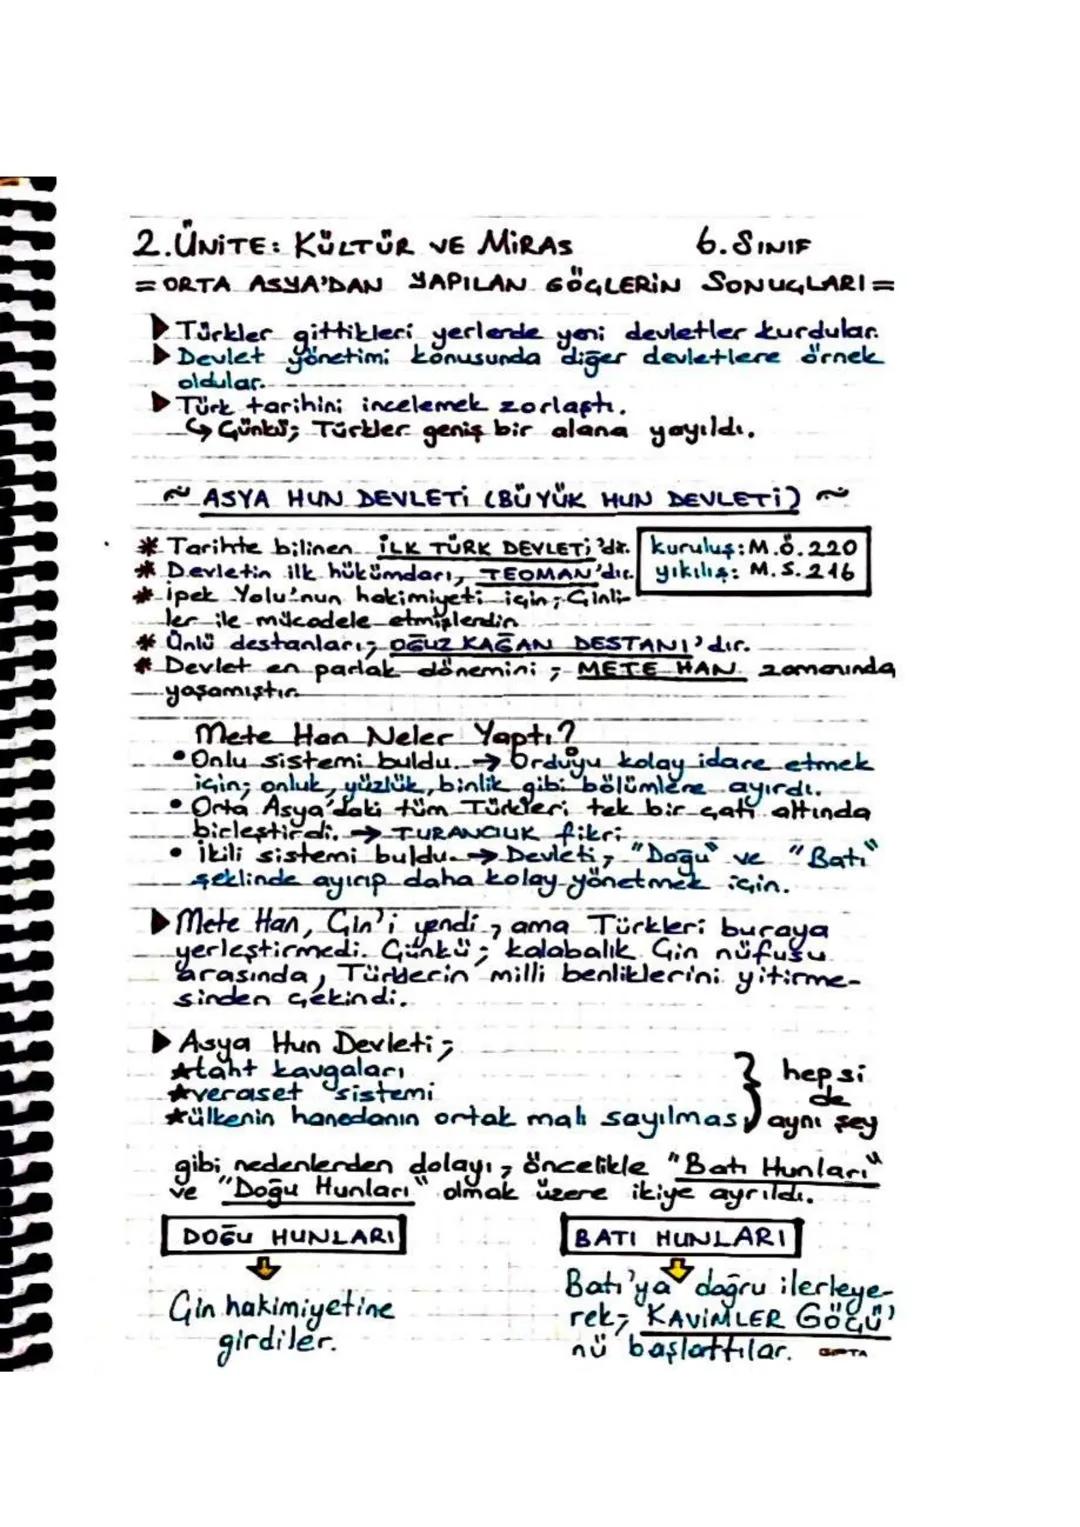 2.ÜNİTE: KÜLTÜR VE MİRAS 6.SINIF
=ORTA ASYA'DAN YAPILAN GÖÇLERİN SONUÇLARI=
▶Türkler gittikleri yerlerde yeni devletler kurdular.
▶Devlet yönetimi konusunda diğer devletlere örnek
oldular.
▶Türk tarihini incelemek zorlaştı.
↪Çünkü; Türkler geniş bir alana yayıldı.
~ ASYA HUN DEVLETİ (BÜYÜK HUN DEVLETİ) ~
* Tarihte bilinen İLK TÜRK DEVLETİ'dir.
* Devletin ilk hükümdarı, TEOMAN'dır.
kuruluş: M.Ö.220
yıkılış: M.S.216
* İpek Yolu'nun hakimiyeti için; Çinli-
ler ile mücadele etmişlerdir.
* Ünlü destanları; OĞUZ KAĞAN DESTANI'dır.
* Devlet en parlak dönemini; METE HAN zamanında
yaşamıştır.
Mete Han Neler Yaptı?
•Onlu sistemi buldu. → Orduyu kolay idare etmek
için; onluk, yüzlük, binlik gibi bölümlere ayırdı.
• Orta Asya'daki tüm Türkleri tek bir çatı altında
birleştirdi. → TURANCILIK fikri
• İkili sistemi buldu. → Devleti, "Doğu" ve "Batı"
şeklinde ayırıp daha kolay yönetmek için.
▶Mete Han, Çin'i yendi, ama Türkleri buraya
yerleştirmedi. Çünkü; kalabalık Çin nüfusu
arasında, Türklerin milli benliklerini yitirme-
sinden çekindi.
▶ Asya Hun Devleti;
★taht kavgaları
★veraset sistemi
★ülkenin hanedanın ortak malı sayılması
} hepsi
de
aynı şey
gibi nedenlerden dolayı, öncelikle "Batı Hunları"
ve "Doğu Hunları" olmak üzere ikiye ayrıldı.
DOĞU HUNLARI
Çin hakimiyetine
girdiler.
BATI HUNLARI
Batı'ya doğru ilerleye-
rek; KAVİMLER GÖÇÜ'
nü başlattılar. GIPTA